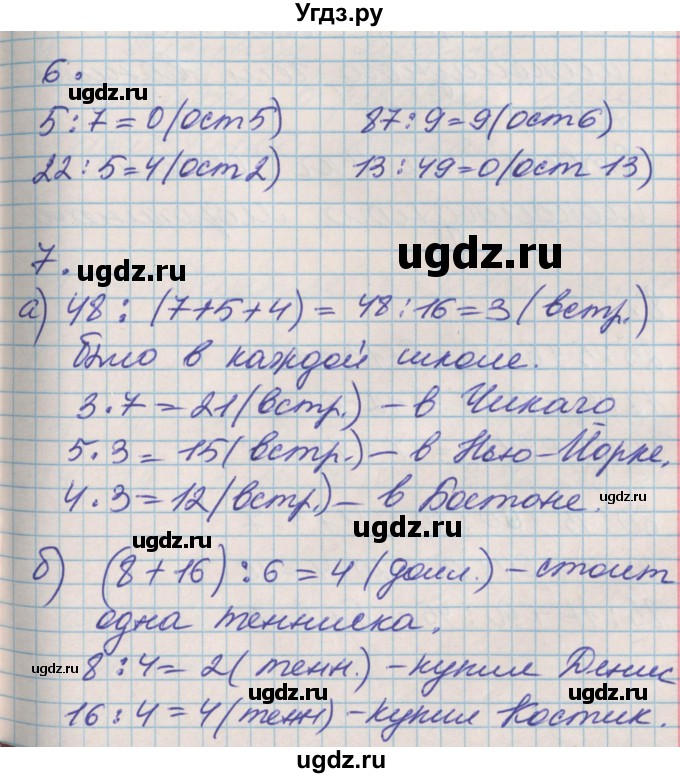 Угдз.ру
6.
ugdz.ru
5:7=0(ост5) 87:9=9(ост6)
22:5=4(ост2) 13:49=0(ост 13)
ugdz.ru
7.
ugdz.ru
а) 48:(7+5+4)=48:16=3(встр.)
было в каждой школе.
3·7=21(встр.)-в Чикаго
5·3=15(встр.)-в Нью-Йорке.
4·3=12(встр.)-в Бостоне.
ugdz.ru
ugdz.ru
б) (8+16):6=4(долл.)-стоит
одна тенниска.
ugdz.ru
8:4=2(тенн.)-купил Денис
ugdz.ru
ugdz.ru
16:4=4(тенн)-купил Костик.
ugdz.ru